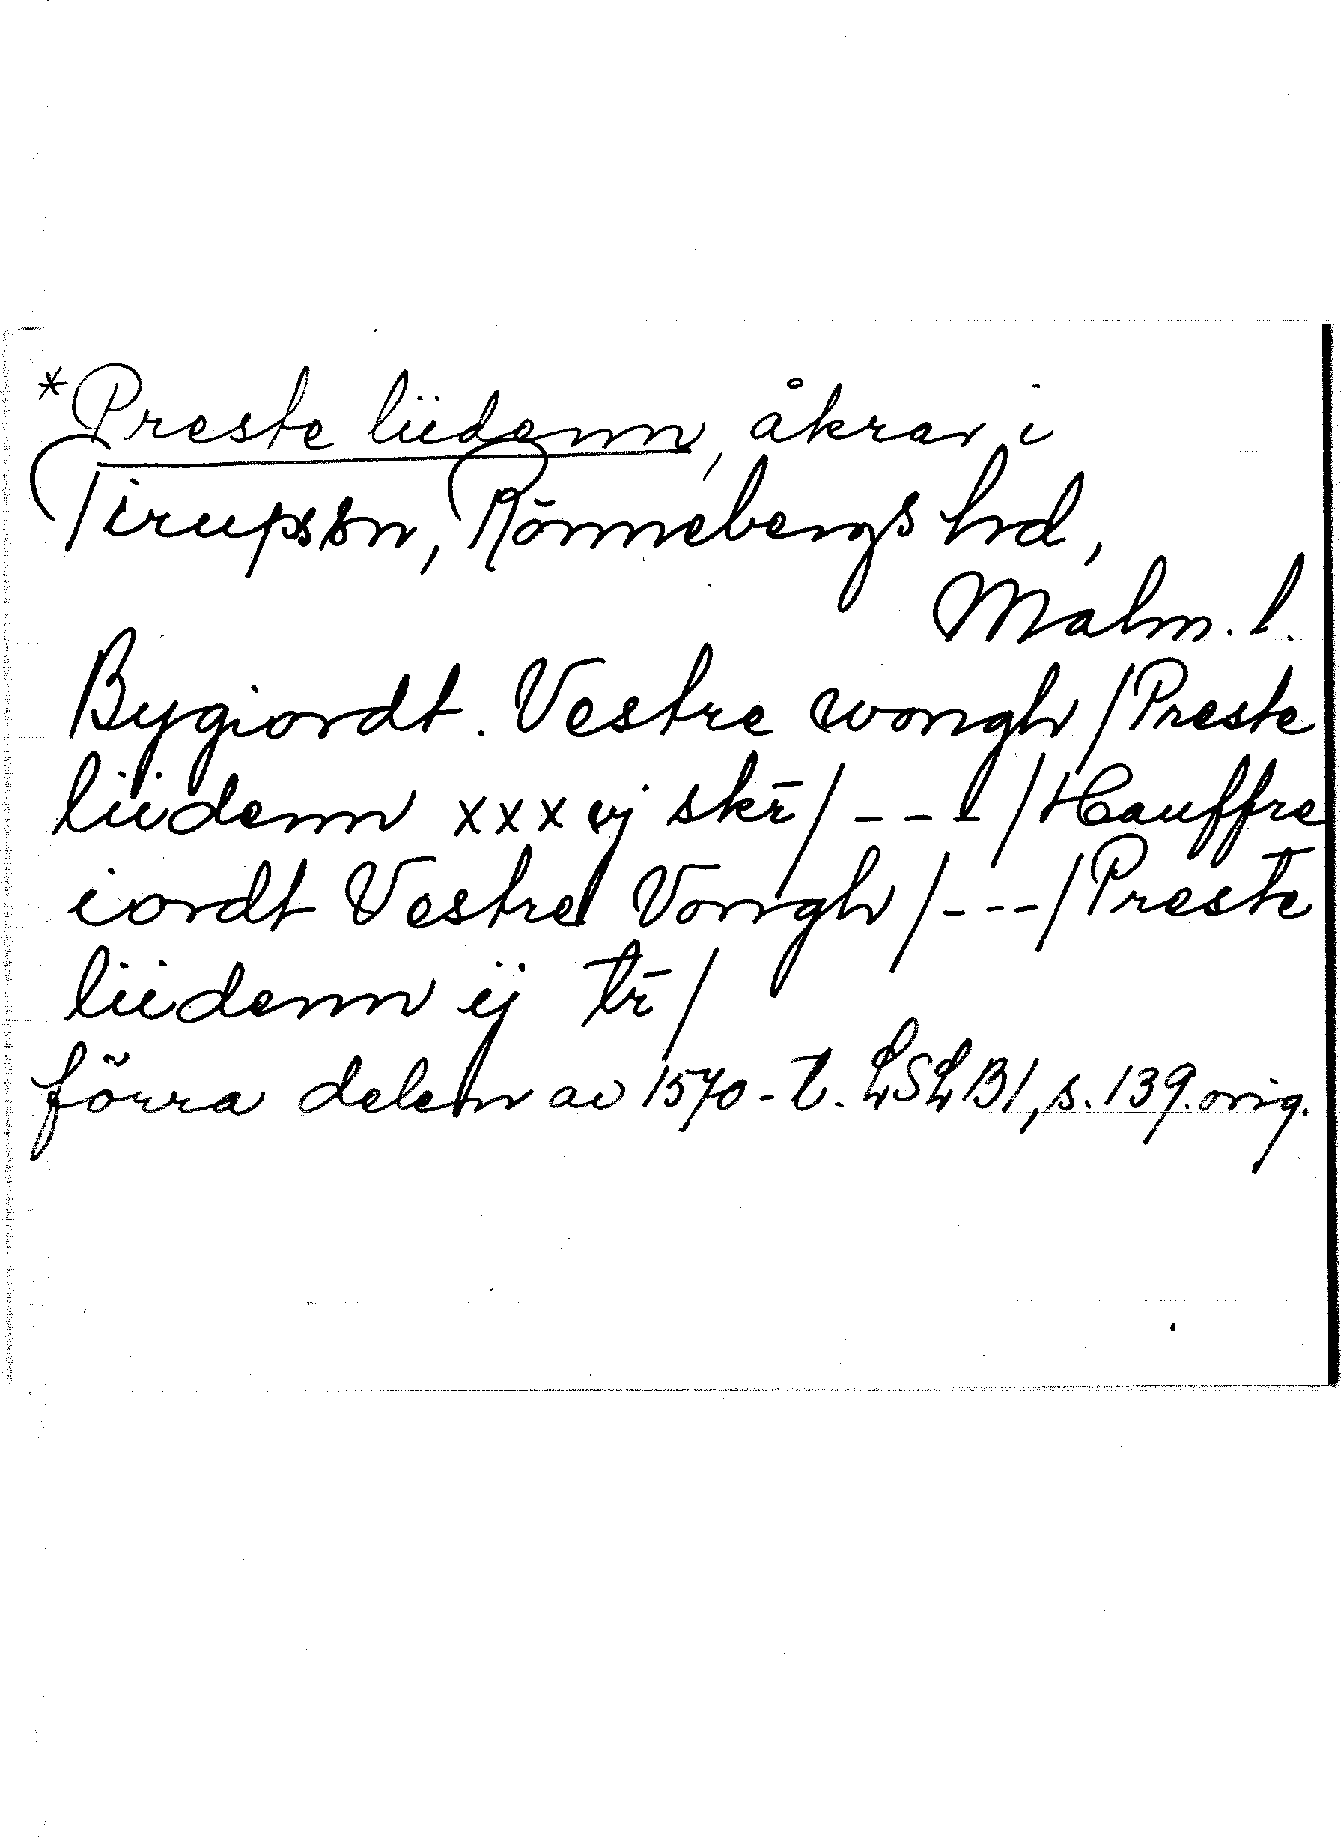 *Preste liidenn, åkrar i
Tirups sn, Rönnebergs hrd,
Malm. l.
Bygiordt. Vestre wongh / Preste
liidenn xxxvj skr̄ / --- / Hauffre
iordt Vestre Vongh / --- / Preste
liidenn ij tr̄ /
förra delen av 1570-t. LSLB1, s. 139. orig.